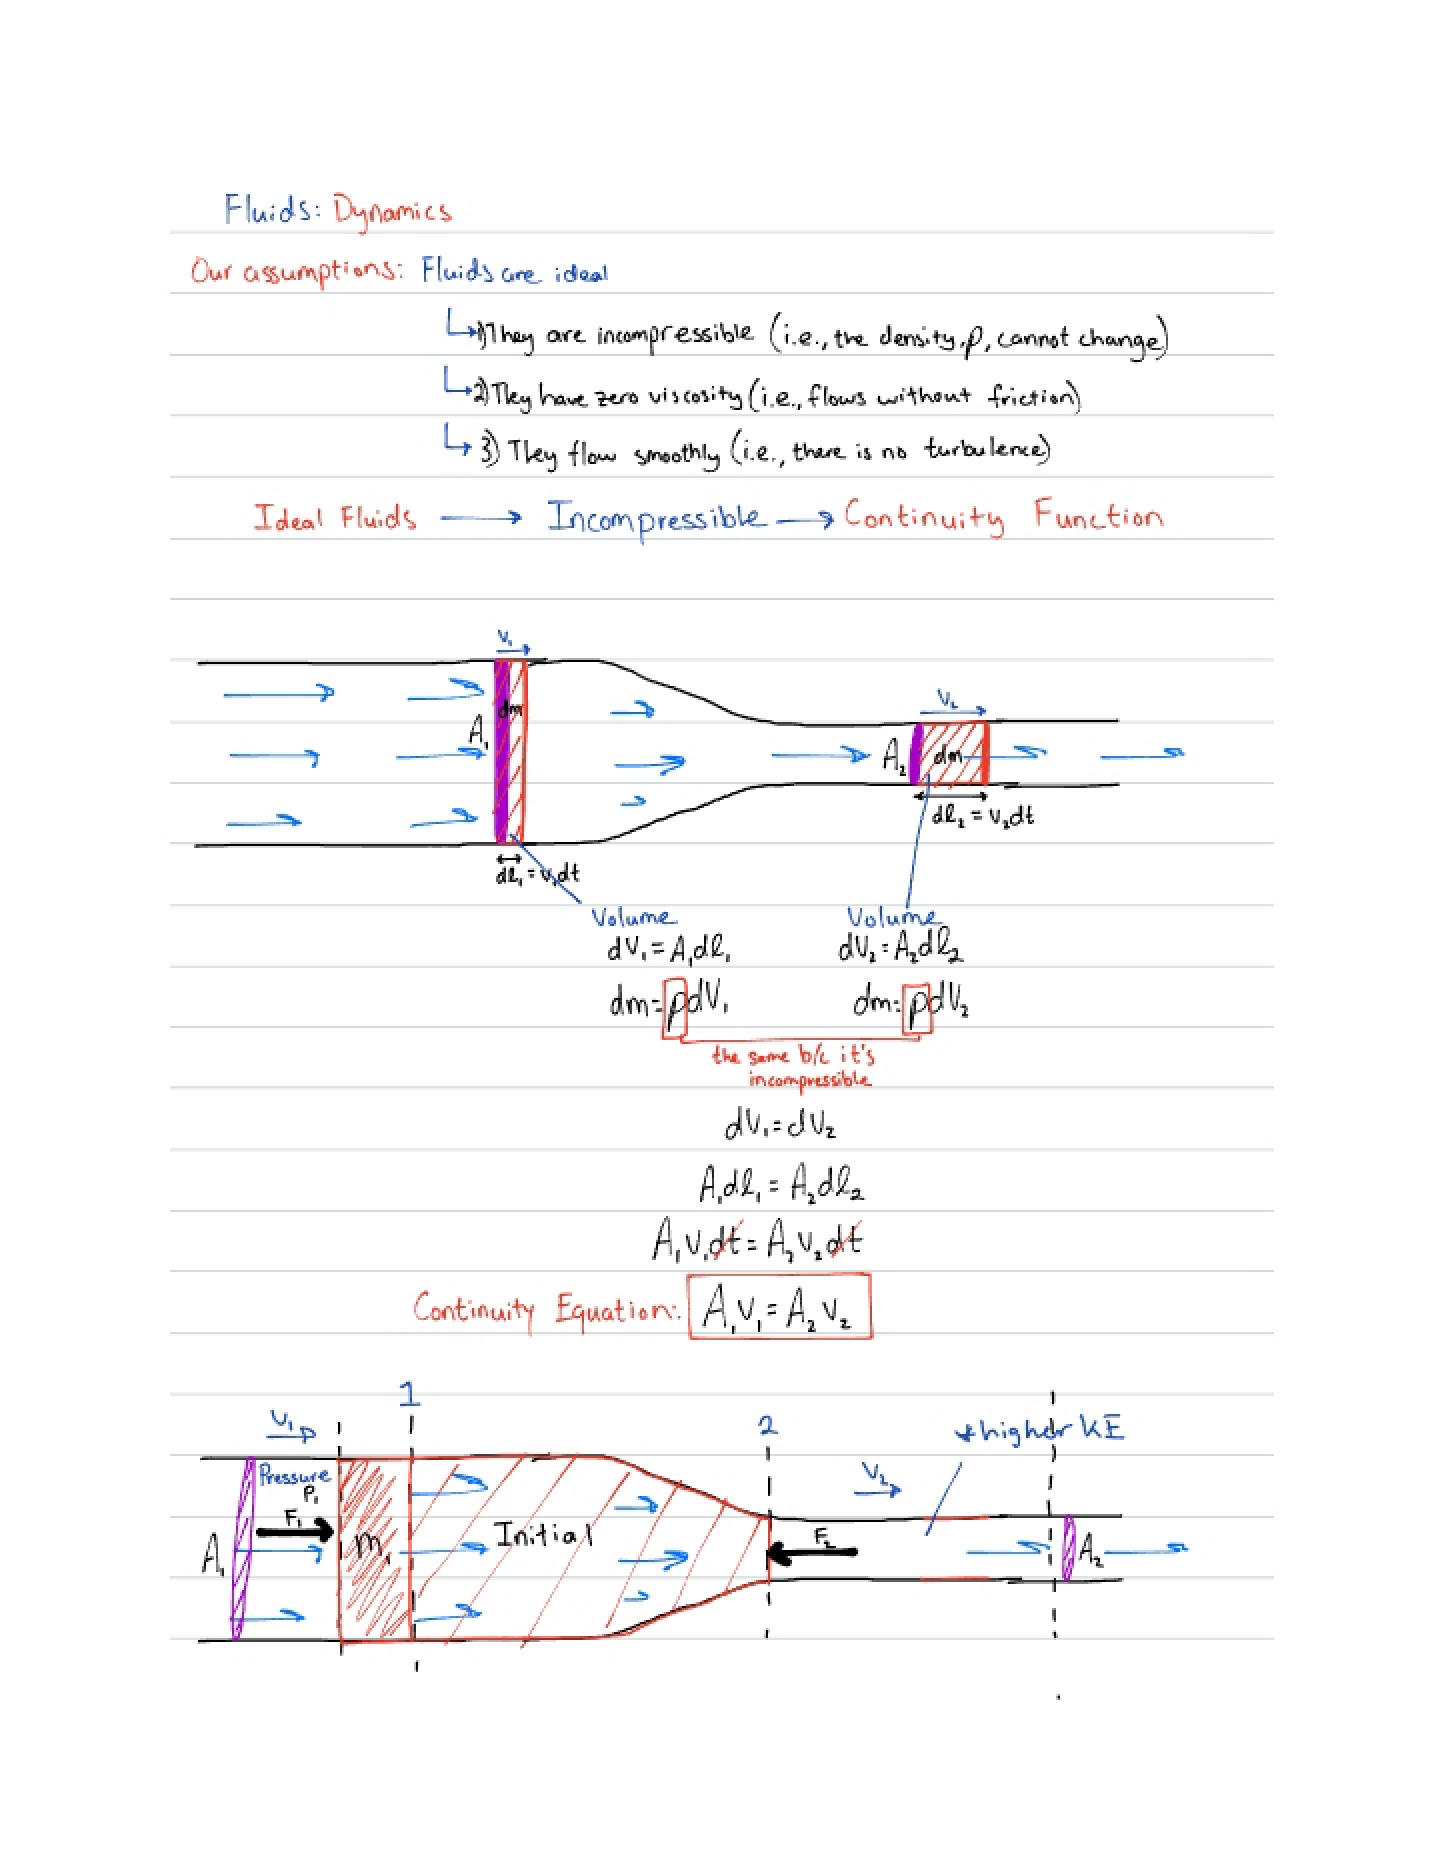 Fluids: Dynamics
Our assumptions: Fluids are ideal
1) They are incompressible (i.e., the density, ρ, cannot change)
2) They have zero viscosity (i.e., flows without friction)
3) They flow smoothly (i.e., there is no turbulence)
Ideal Fluids → Incompressible → Continuity Function
V₁
dm
A₁
V₂
A₂ dm
dl₂ = v₂dt
dl₁ = v₁dt
Volume Volume
dV₁ = A₁dl₁ dV₂ = A₂dl₂
dm = ρdV₁ dm = ρdV₂
the same b/c it's
incompressible
dV₁ = dV₂
A₁dl₁ = A₂dl₂
A₁v₁dt = A₂v₂dt
Continuity Equation: A₁v₁ = A₂v₂
1
V₁ 2 *higher KE
Pressure V₂
P₁
F₁
A₁ m₁ Initial F₂ A₂